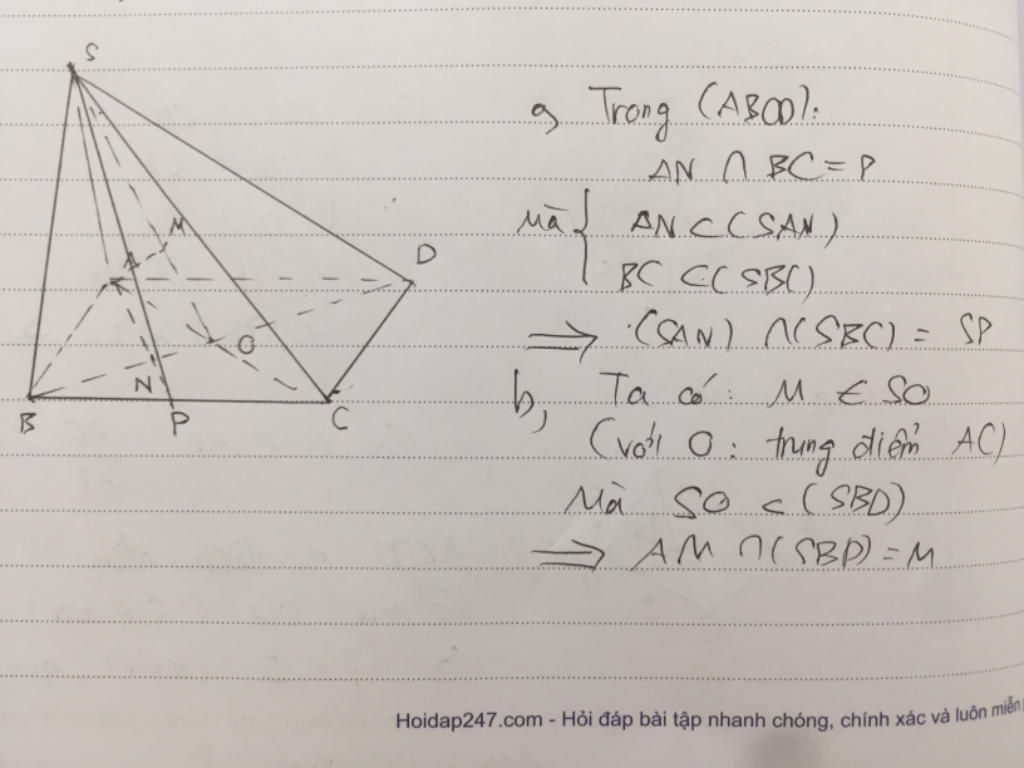 S
M
A
D
O
N
B
P
C
a, Trong (ABCD):
AN ∩ BC = P
Mà { AN ⊂ (SAN)
BC ⊂ (SBC)
⟹ (SAN) ∩ (SBC) = SP
b, Ta có: M ∈ SO
(với O: trung điểm AC)
Mà SO ⊂ (SBD)
⟹ AM ∩ (SBD) = M
Hoidap247.com - Hỏi đáp bài tập nhanh chóng, chính xác và luôn miễn